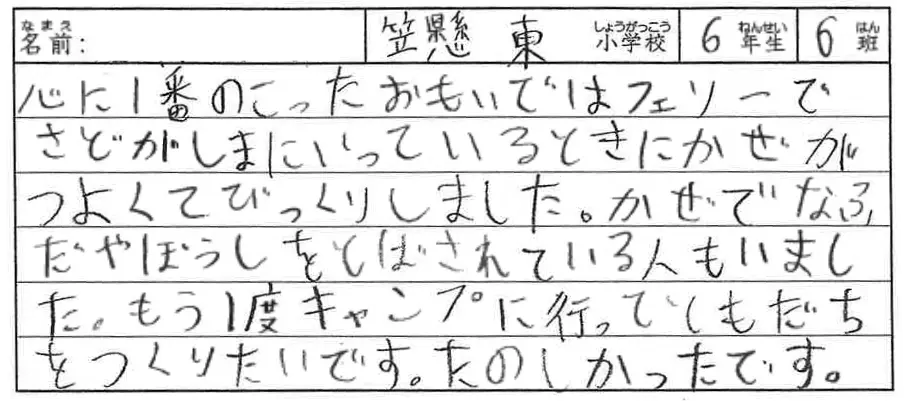 名前: なまえ 笠懸東 小学校 しょうがっこう 6 年生 ねんせい 6 班 はん
心に1番のこったおもいではフェリーで
さどがしまにいっているときにかぜが
つよくてびっくりしました。かぜでなふ
だやぼうしをとばされている人もいまし
た。もう1度キャンプに行ってともだち
をつくりたいです。たのしかったです。